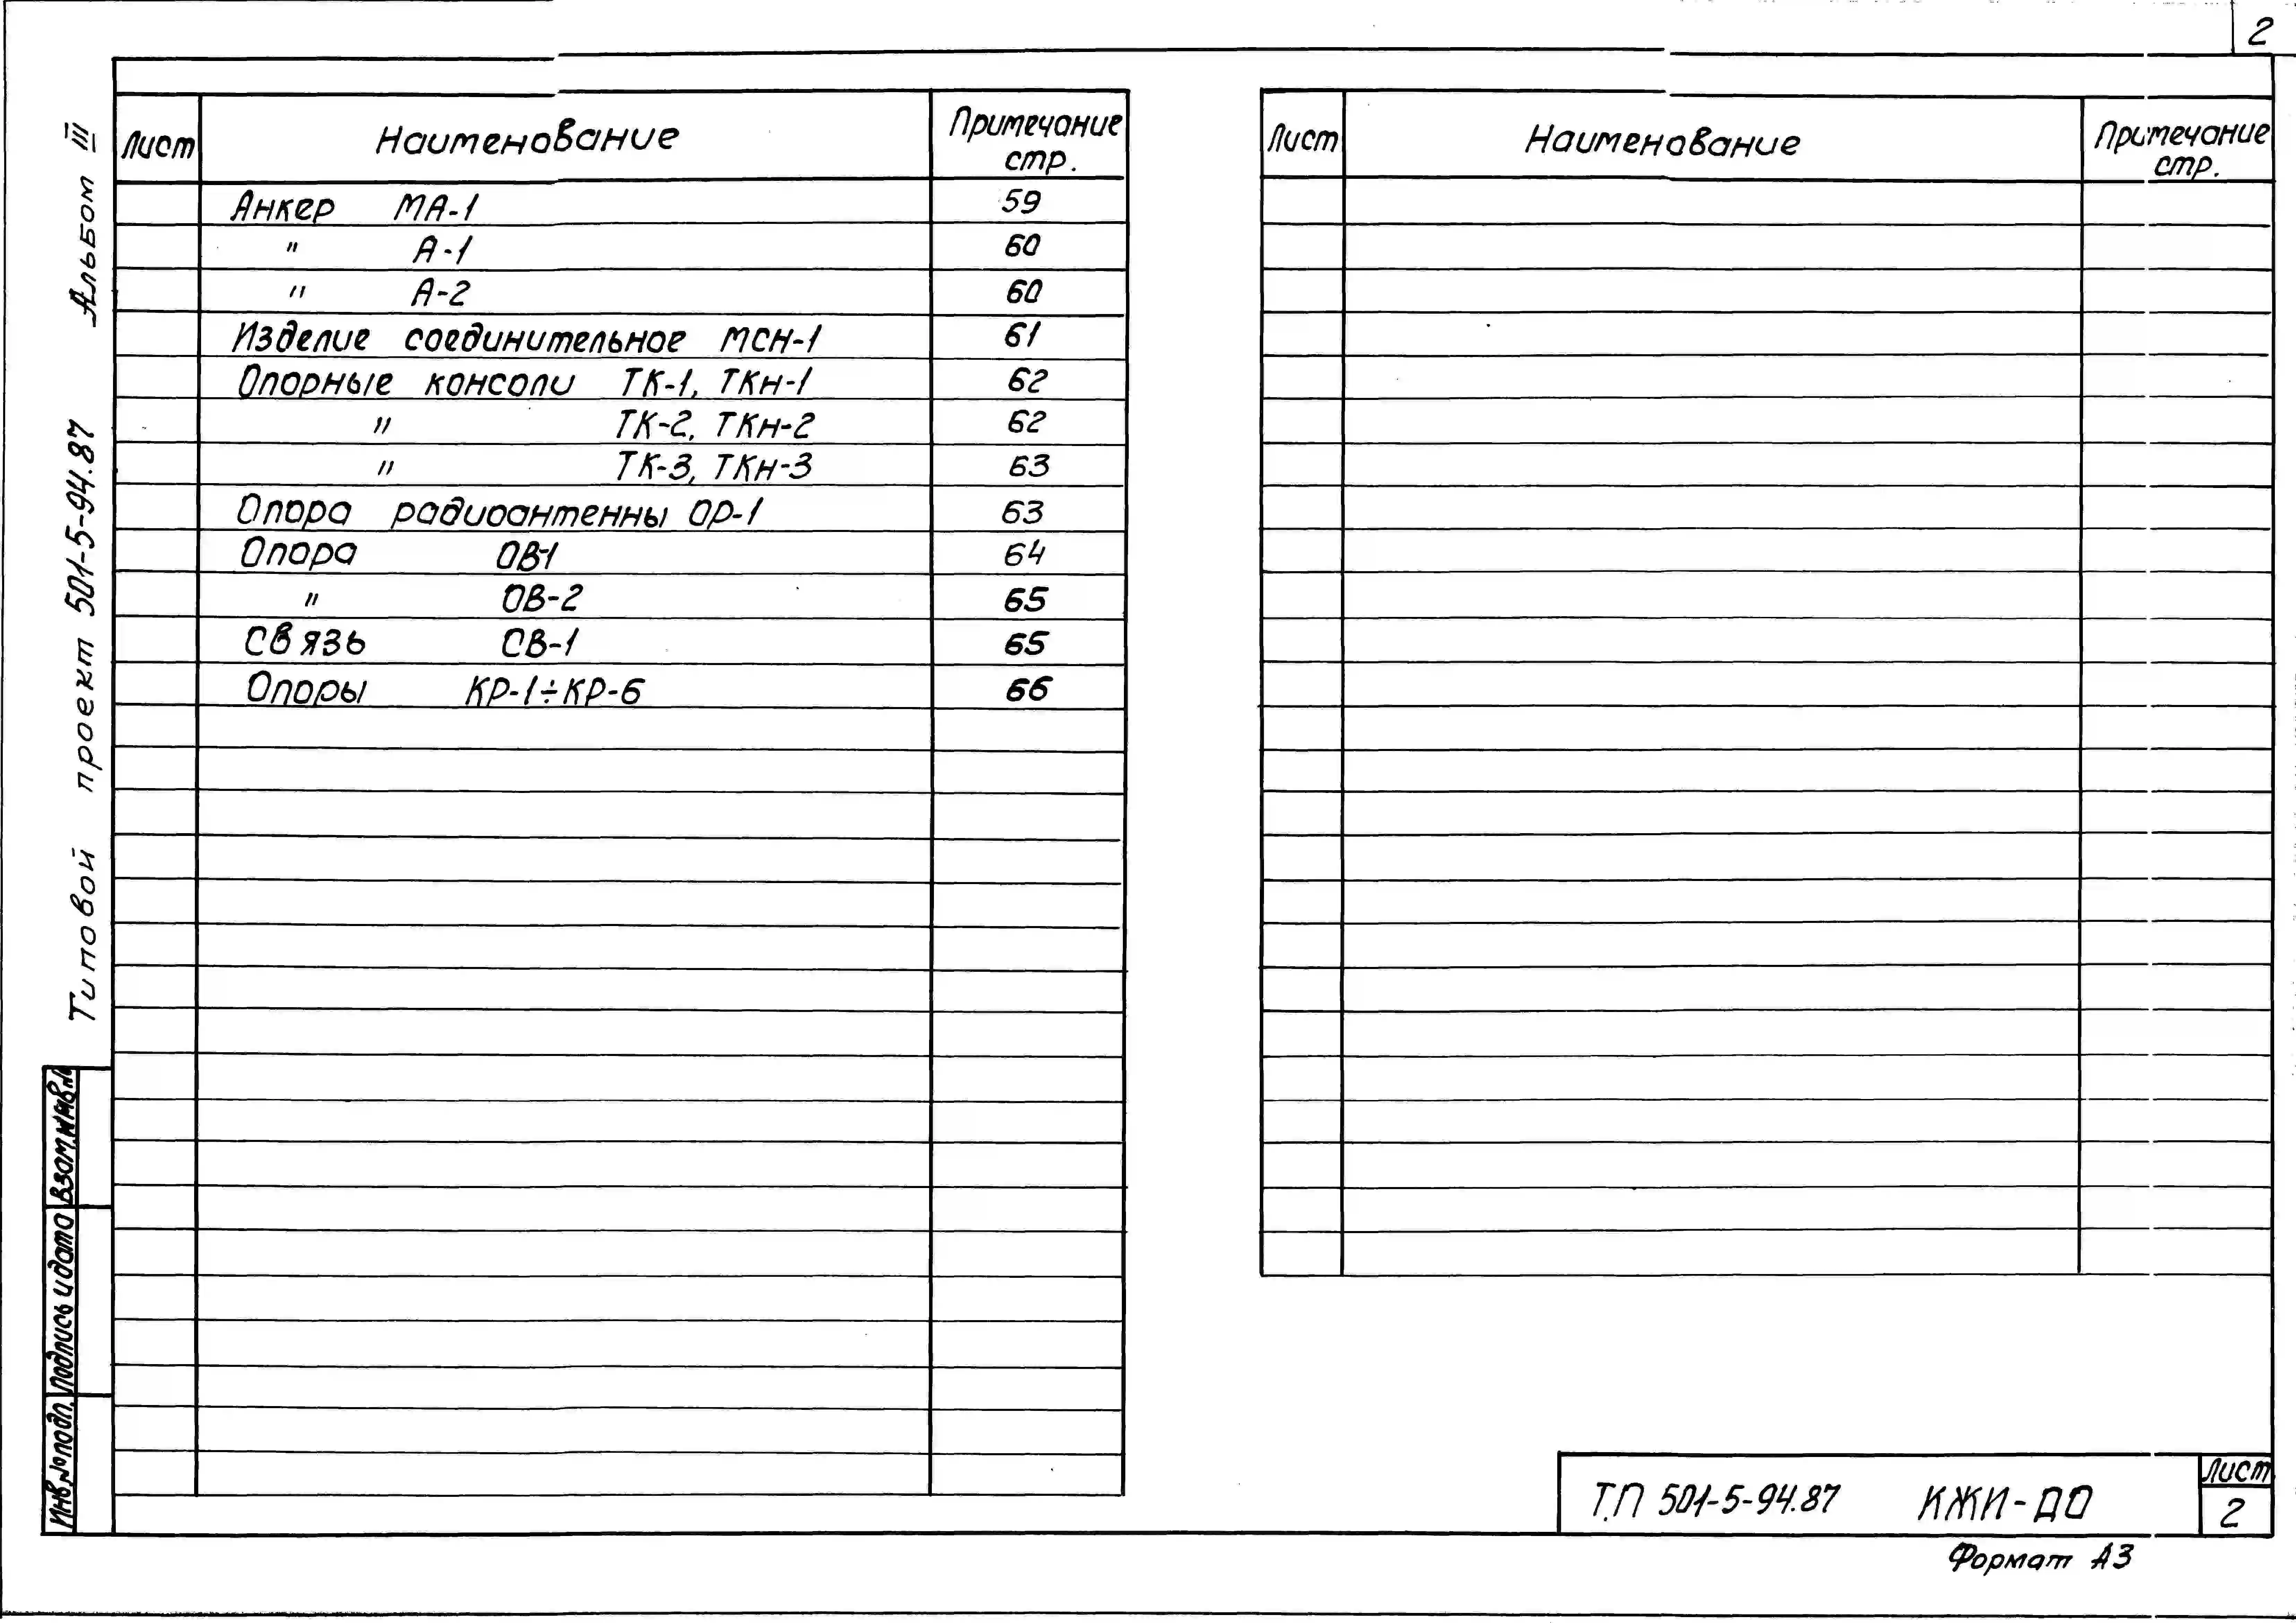 2
Альбом III
Типовой проект 501-5-94.87
Лист Наименование Примечание стр.
Анкер МА-1 59
" А-1 60
" А-2 60
Изделие соединительное МСН-1 61
Опорные консоли ТК-1, ТКн-1 62
" ТК-2, ТКн-2 62
" ТК-3, ТКн-3 63
Опора радиоантенны ОР-1 63
Опора ОВ-1 64
" ОВ-2 65
Связь СВ-1 65
Опоры КР-1÷КР-6 66
Лист Наименование Примечание стр.
Взам.инв.№
Подпись и дата
Инв.№подл.
Т.П 501-5-94.87 КЖИ-ДО
Лист
2
Формат А3